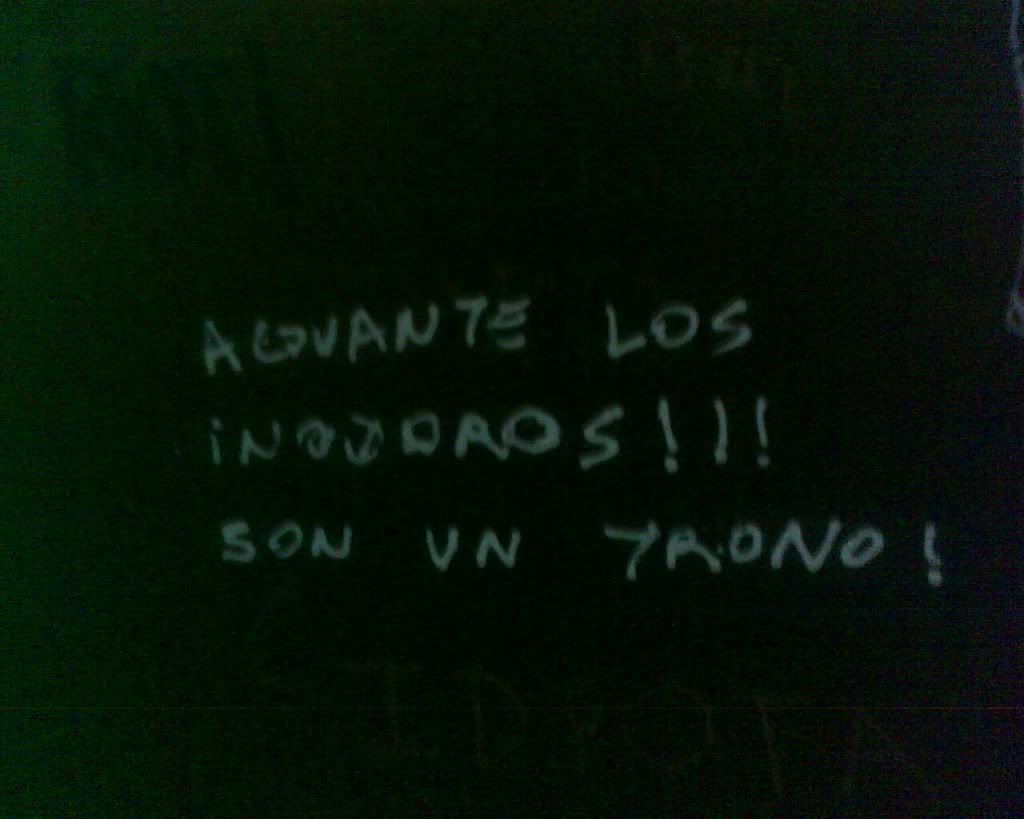 AGUANTE LOS
iNODOROS!!!
SON UN TRONO!